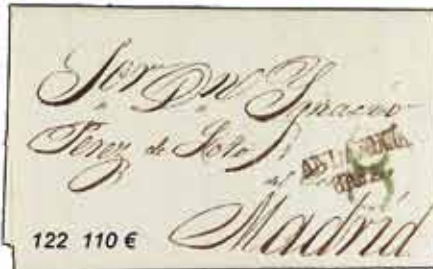 Sor Dn Ygnacio
Perez de Soto
del
BAXA
Madrid
122 110 €